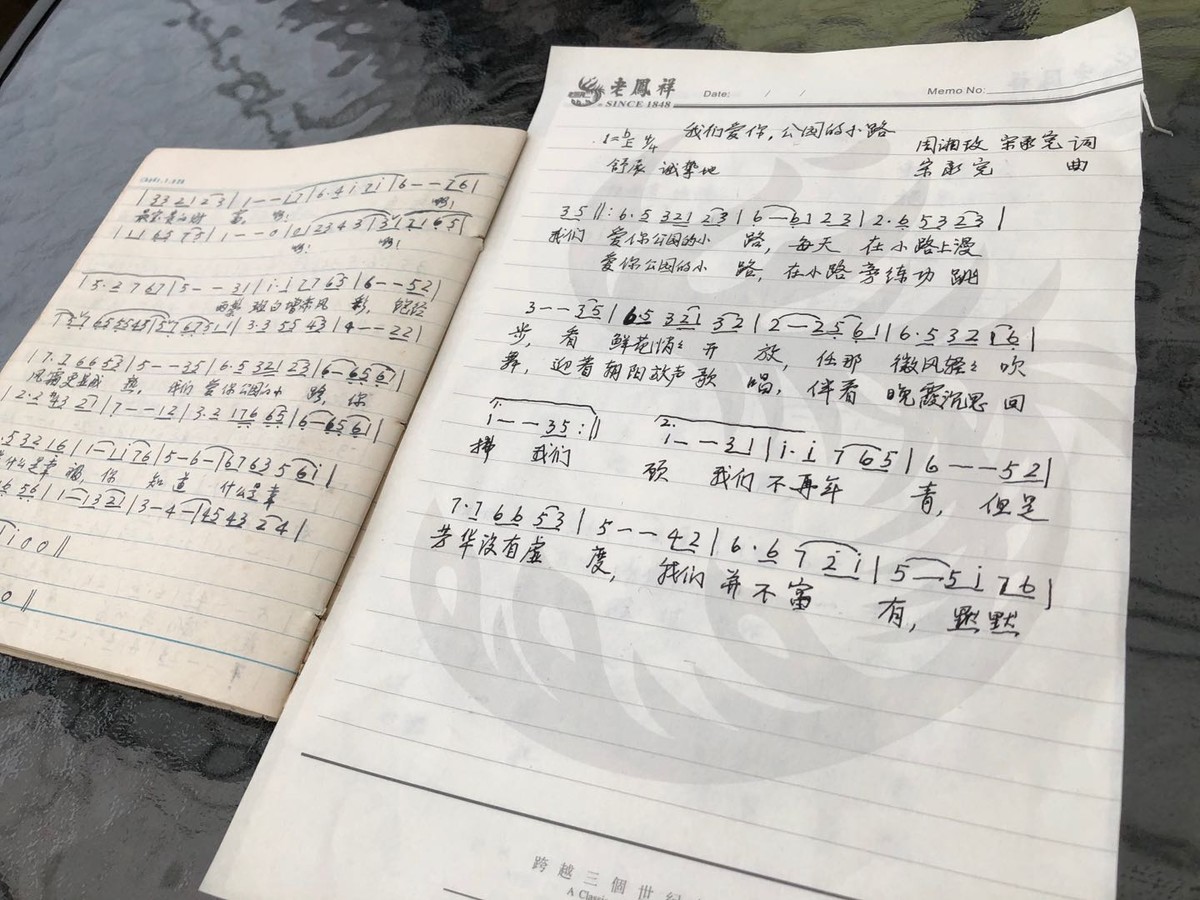 | 3 3 2 1 2 3 | 1 - - 1 7 | 6 · 4 1 2 1 | 6 - - 7 6 |
啊！
啊！ 啊！
| 5 · 2 7 6 7 | 5 - - 3 1 | 1 · 1 7 7 6 5 | 6 - - 5 2 |
两鬓 斑白 风 彩，饱经
| 3 · 3 5 5 4 3 | 4 - - 2 2 |
| 7 · 7 6 6 5 3 | 5 - - 3 5 | 6 · 5 3 2 1 2 3 | 6 - 6 5 6 |
风霜 我们 爱你公园的小 路，你
| 7 - - 1 2 | 3 · 2 1 7 6 6 5 | 6 - 6 5 6 |
· 5 3 2 1 6 | 1 - 1 7 6 | 5 - 6 - | 6 7 6 3 5 6 1 |
什么是幸 福，你 知 道 什么是幸
5 6 | 1 - 1 3 2 | 3 - 4 - | 4 5 4 3 2 4 |
1 0 0 ‖
0 ‖
老鳳祥
SINCE 1848
Date: / /
Memo No:
我们爱你，公园的小路
1=b 4/4
周湘玫 宋承宪 词
舒展 诚挚地
宋承宪 曲
3 5 ‖: 6 · 5 3 2 1 2 3 | 6 — 6 1 2 3 | 2 · 6 5 3 2 3 |
我们 爱你公园的小 路，每天 在小路上漫
爱你公园的小 路，在小路 旁练功 跳
3 - - 3 5 | 6 5 3 2 1 3 2 | 2 — 2 5 6 1 | 6 · 5 3 2 1 6 |
步，看 鲜花悄々 开 放，任那 微风轻々 吹
舞，迎着 朝阳放声 歌 唱，伴着 晚霞沉思 回
1. 2.
1 - - 3 5 :‖ 1 - - 3 1 | 1 · 1 7 6 5 | 6 - - 5 2 |
拂 我们 顾 我们 不再年 青，但是
7 · 7 6 6 5 3 | 5 - - 4 2 | 6 · 6 7 2 1 | 5 — 5 1 7 6 |
芳华没有虚 度，我们 并 不 富 有，默默
跨越三個世紀
A Classic